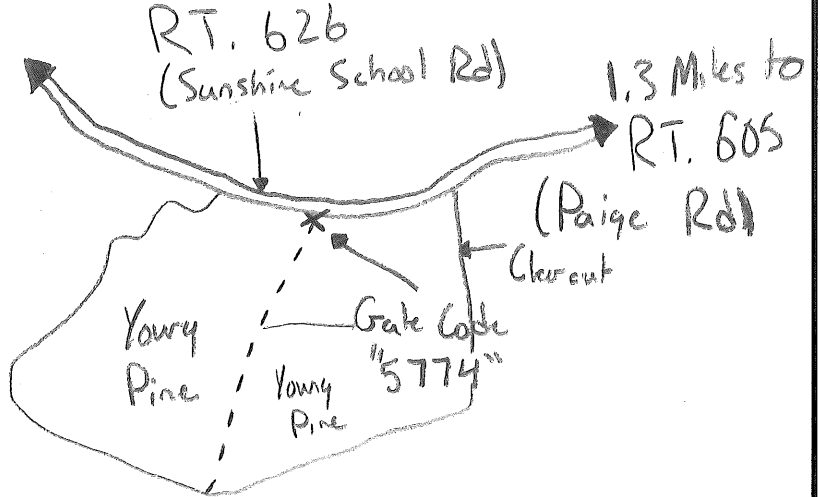 RT. 626
(Sunshine School Rd)
1.3 Miles to
RT. 605
(Paige Rd)
Clearcut
Gate Code
"5774"
Young
Pine
Young
Pine